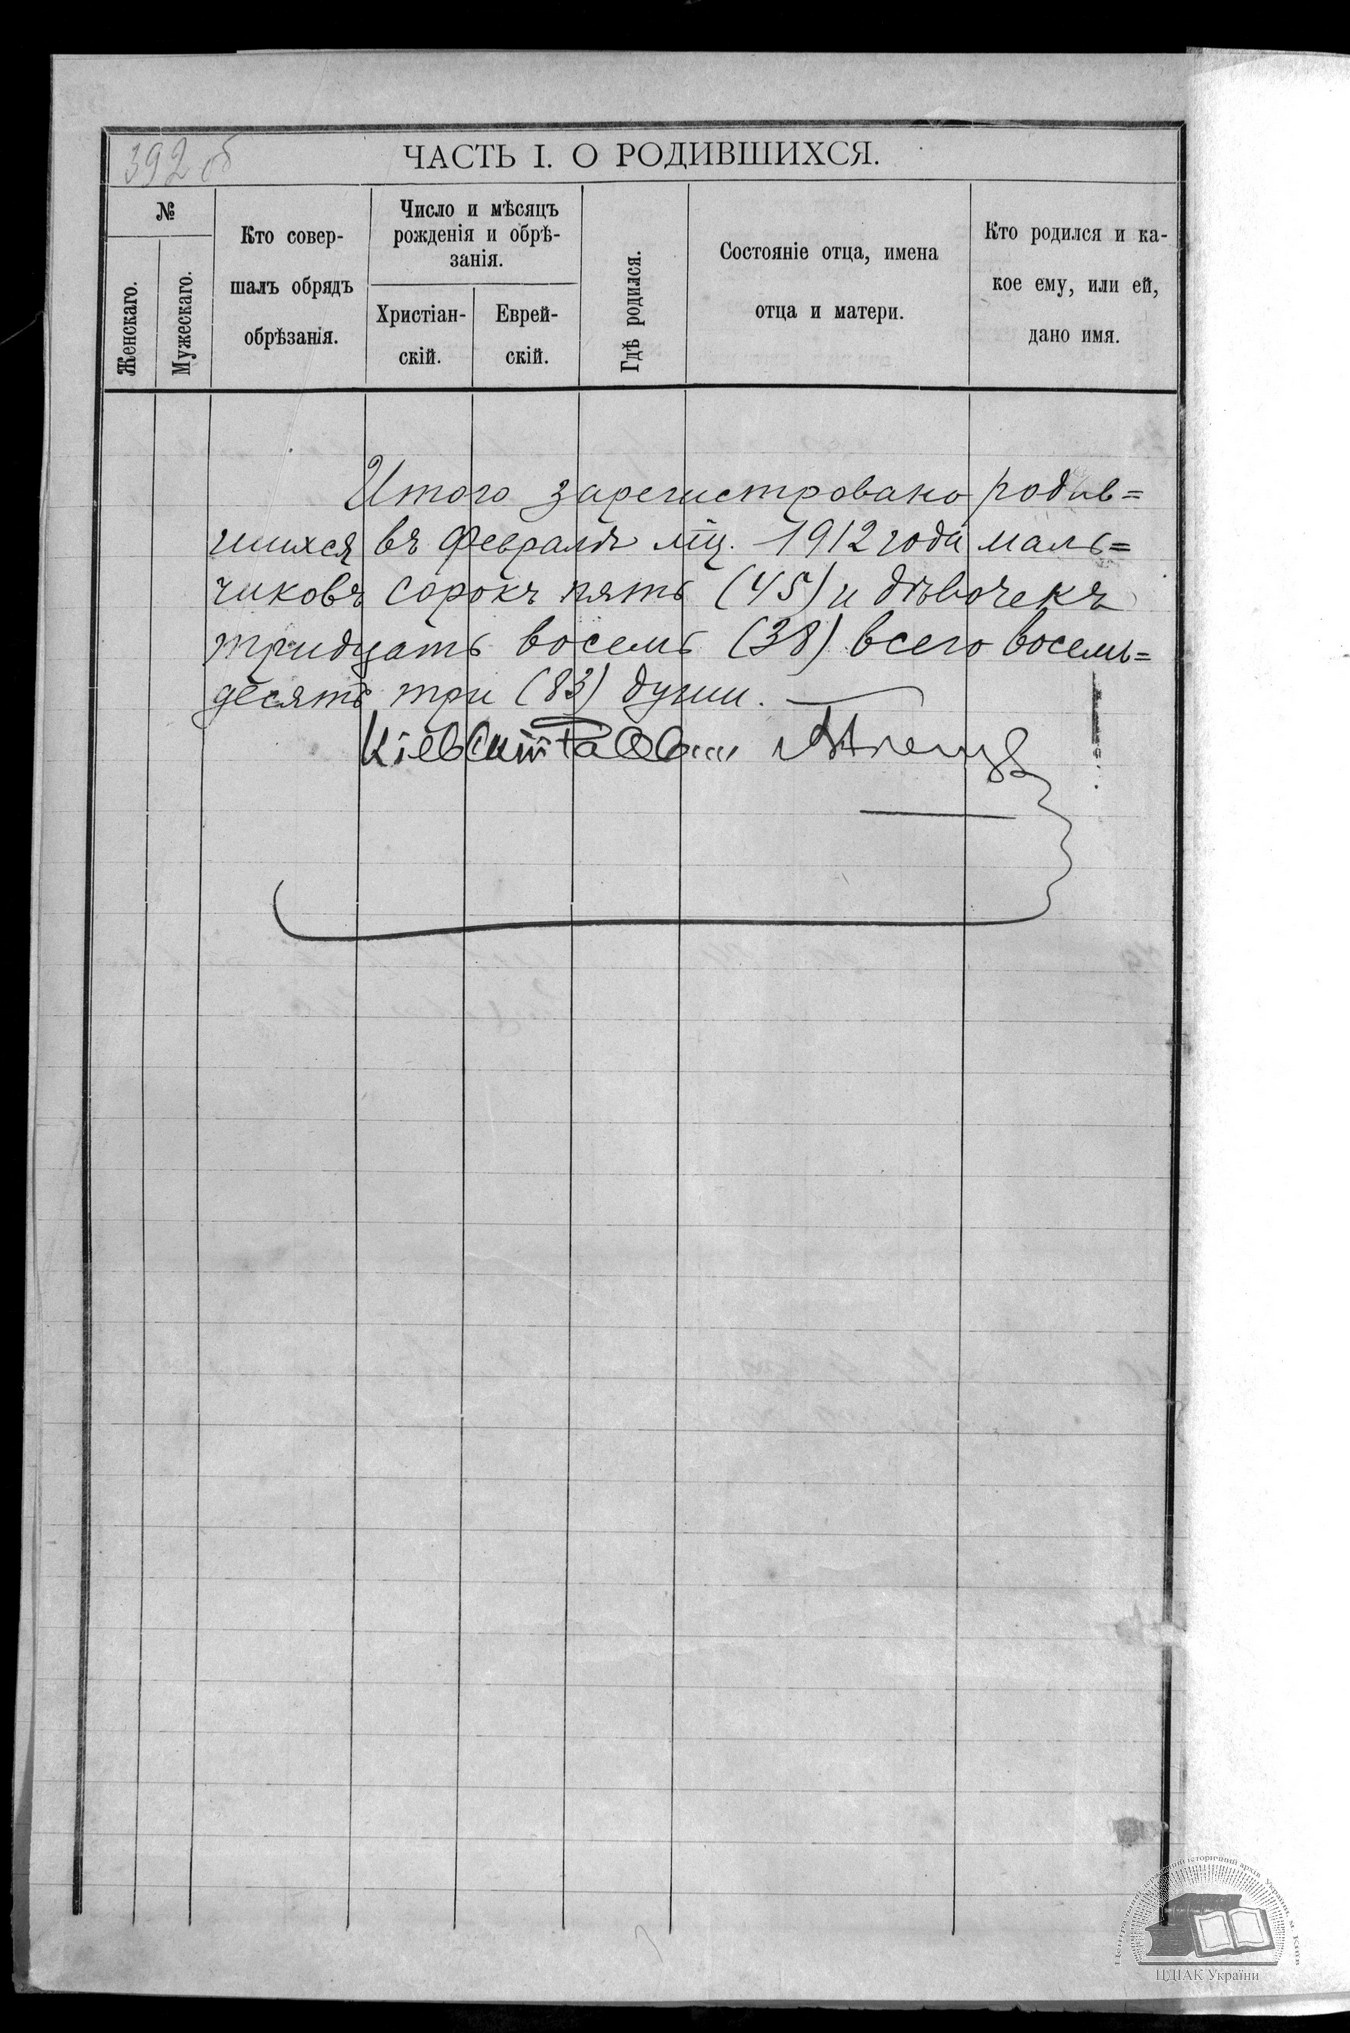 392 об
ЧАСТЬ I. О РОДИВШИХСЯ.
№
Женскаго.
Мужескаго.
Кто совер-
шалъ обрядъ
обрѣзанія.
Число и мѣсяцъ
рожденія и обрѣ-
занія.
Христіан-
скій.
Еврей-
скій.
Гдѣ родился.
Состояніе отца, имена
отца и матери.
Кто родился и ка-
кое ему, или ей,
дано имя.
Итого зарегистровано родив=
шихся въ Февралѣ мц. 1912 года маль=
чиковъ сорокъ пять (45) и дѣвочекъ
тридцать восемь (38) всего восемь=
десятъ три (83) души.
Кіевскій Раввин
ЦДІАК України